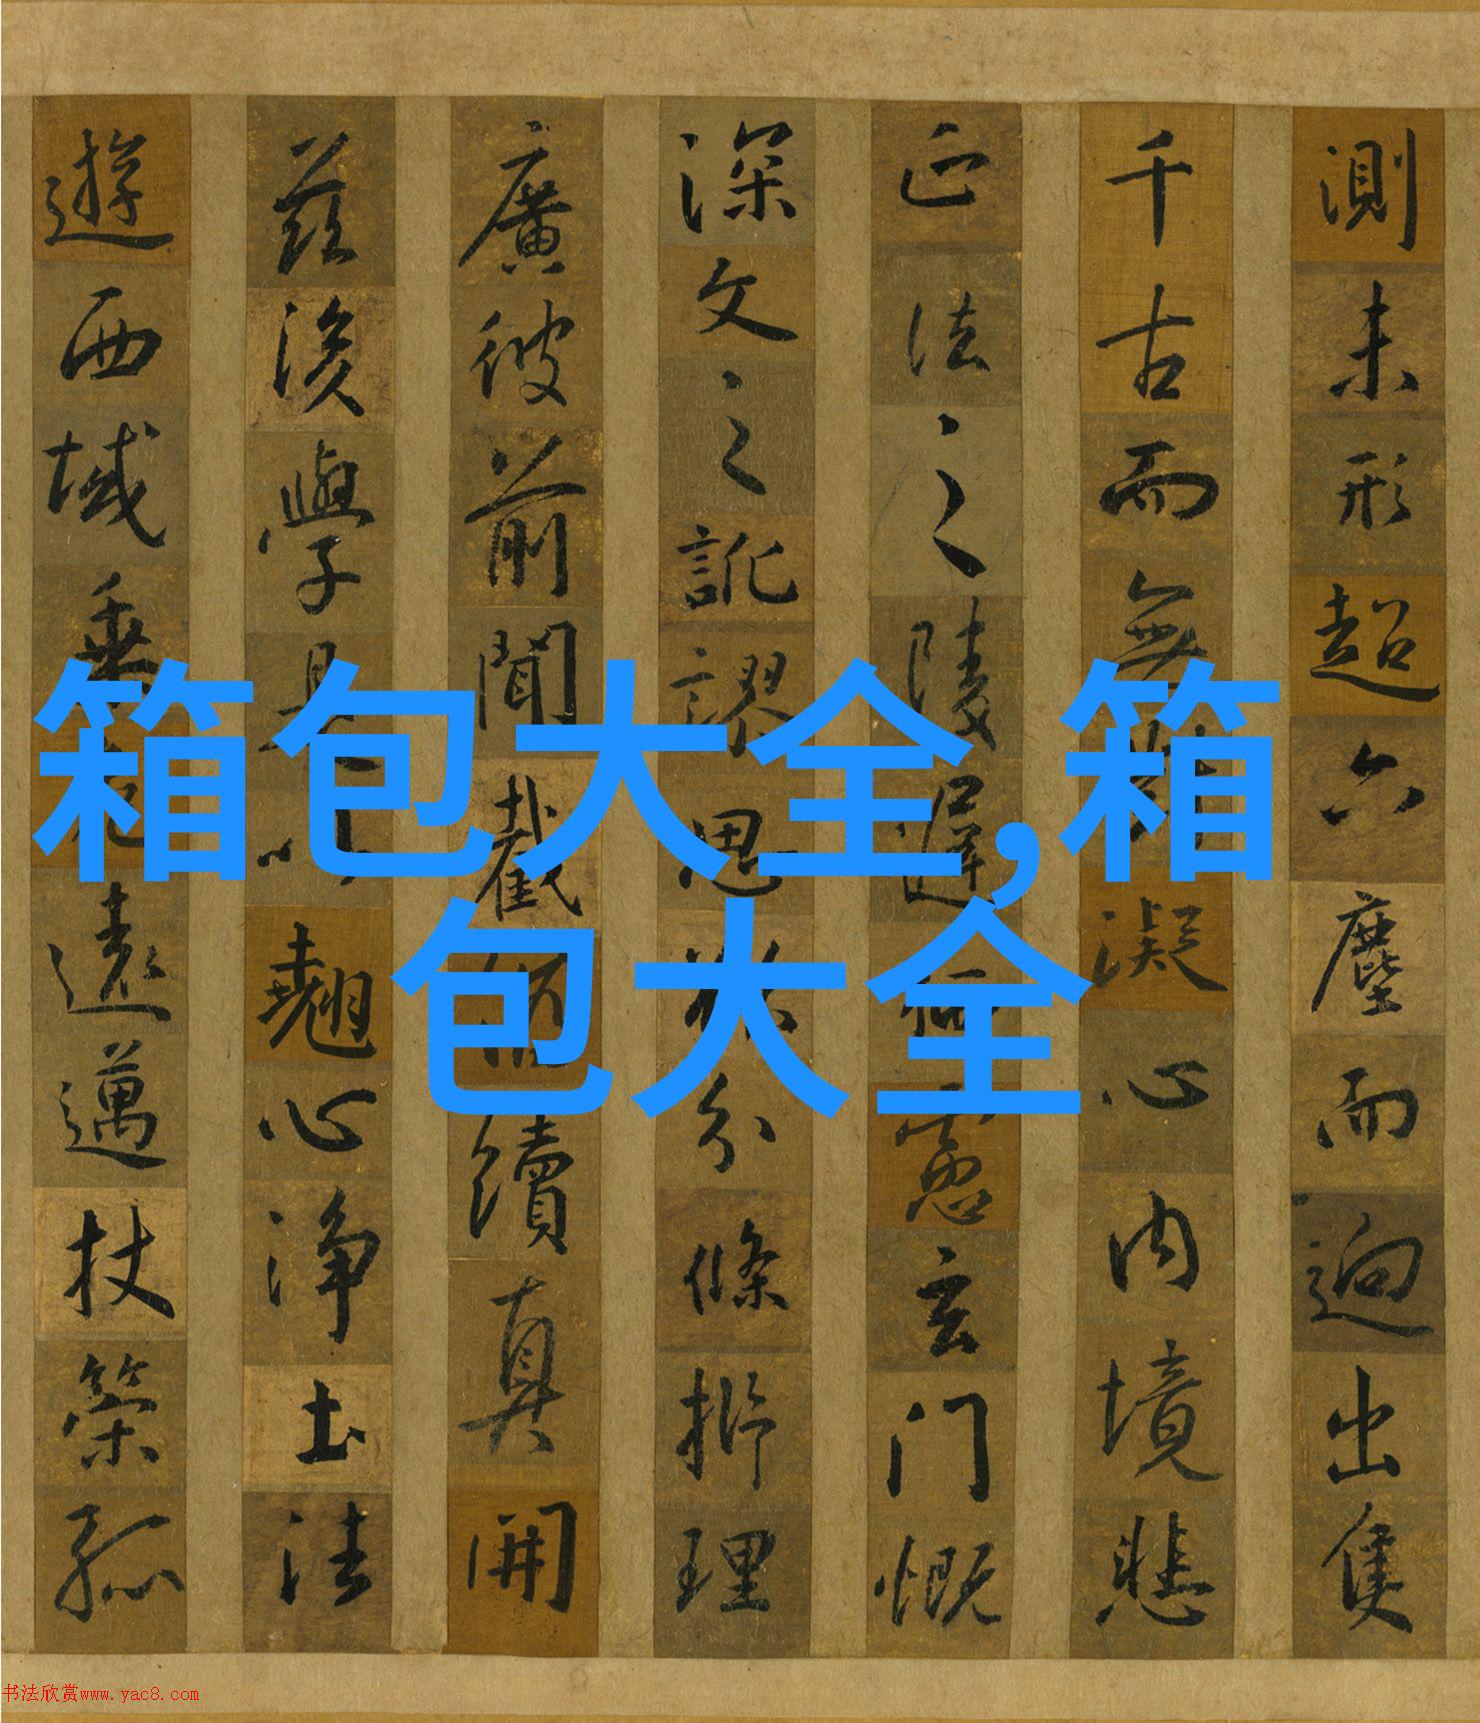 測未形超六塵而迥出隻
千古而無凝心內境悲
正法之陵遲慮玄門慨
深文之訛謬思分條析理
廣彼前聞截續真開
茲後學翹心淨土法
遊西域乘遠邁杖策孤
箱包大全,箱
包大全
书法欣赏www.yac8.com